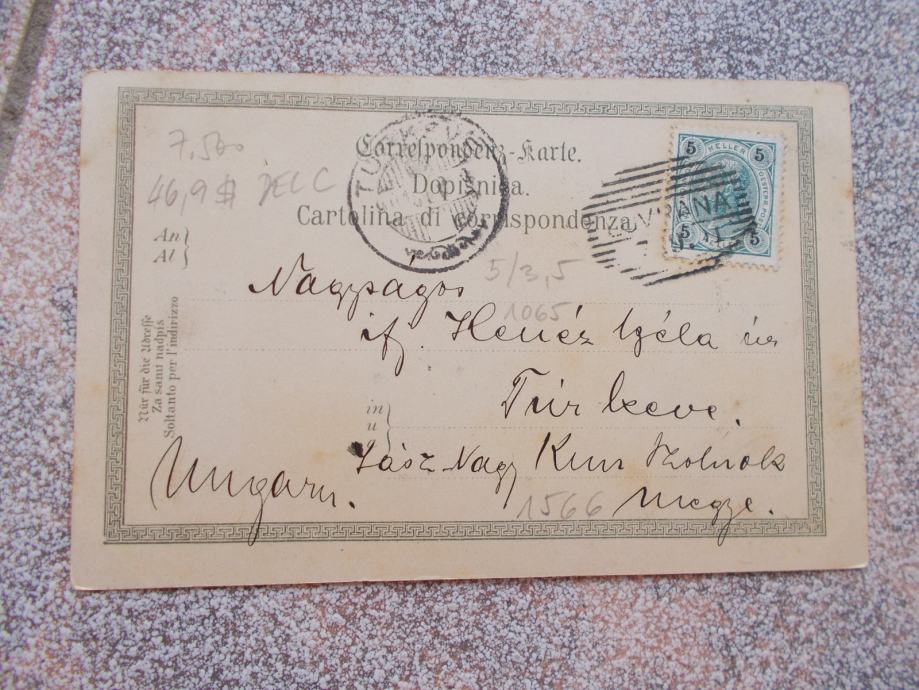 7,500
46,9 $
Correspondenz-Karte.
Dopisnica.
Cartolina di corrispondenza.
5 5
HELLER
5 5
An
Al
5/3,5
Nagyságos
1065
ifj. Úr
Nur für die Adresse
Za samu nadpis
Soltanto per l'indirizzo
in
u
Túrkeve.
Jász Nagy Kun Szolnok
Ungarn.
1566
megye.